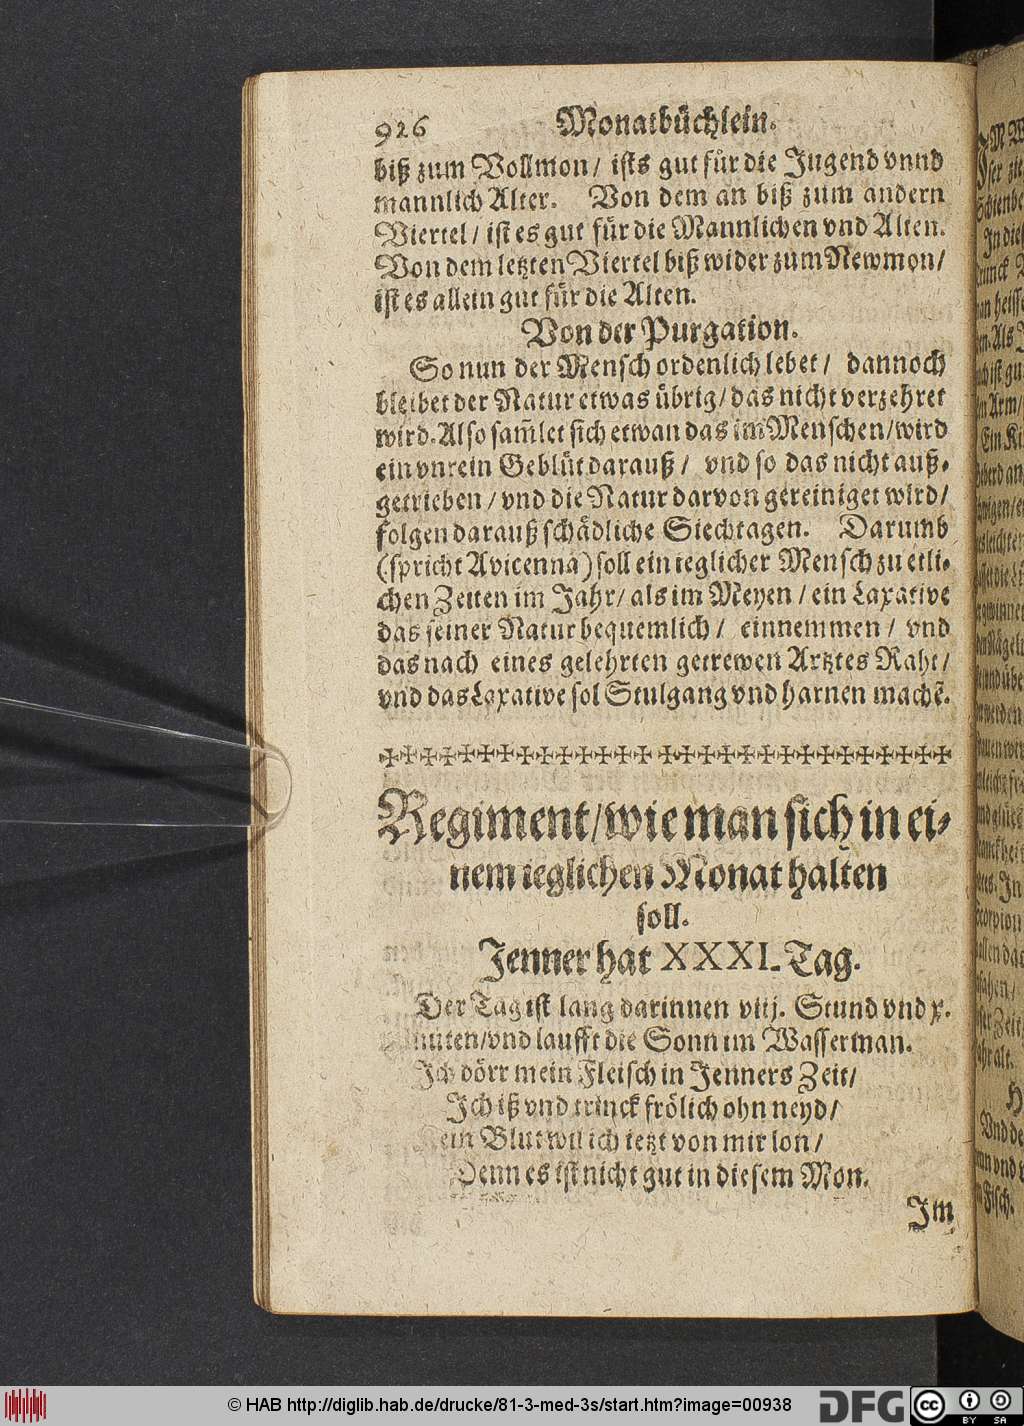 926 Monatbüchlein.
biß zum Vollmon/ ists gut für die Jugend vnnd
mannlich Alter. Von dem an biß zum andern
Viertel/ ist es gut für die Mannlichen vnd Alten.
Von dem letzten Viertel biß wider zum Newmon/
ist es allein gut für die Alten.
Von der Purgation.
So nun der Mensch ordenlich lebet/ dannoch
bleibet der Natur etwas übrig/ das nicht verzehret
wird. Also sam̃let sich etwan das im Menschen/ wird
ein vnrein Geblüt darauß/ vnd so das nicht auß-
getrieben/ vnd die Natur darvon gereiniget wird/
folgen darauß schädliche Siechtagen. Darumb
(spricht Avicenna) soll ein ieglicher Mensch zu etli-
chen Zeiten im Jahr/ als im Meyen/ ein Laxative
das seiner Natur bequemlich/ einnemmen/ vnd
das nach eines gelehrten getrewen Artztes Raht/
vnd das Laxative sol Stulgang vnd harnen machẽ.
Regiment/ wie man sich in ei-
nem ieglichen Monat halten
soll.
Jenner hat XXXI. Tag.
Der Tag ist lang darinnen viij. Stund vnd x.
nuten/ vnd laufft die Sonn im Wasserman.
Ich dörr mein Fleisch in Jenners Zeit/
Ich iß vnd trinck frölich ohn neyd/
ein Blut wil ich ietzt von mir lon/
Denn es ist nicht gut in diesem Mon.
Im
© HAB http://diglib.hab.de/drucke/81-3-med-3s/start.htm?image=00938
DFG
cc
BY SA